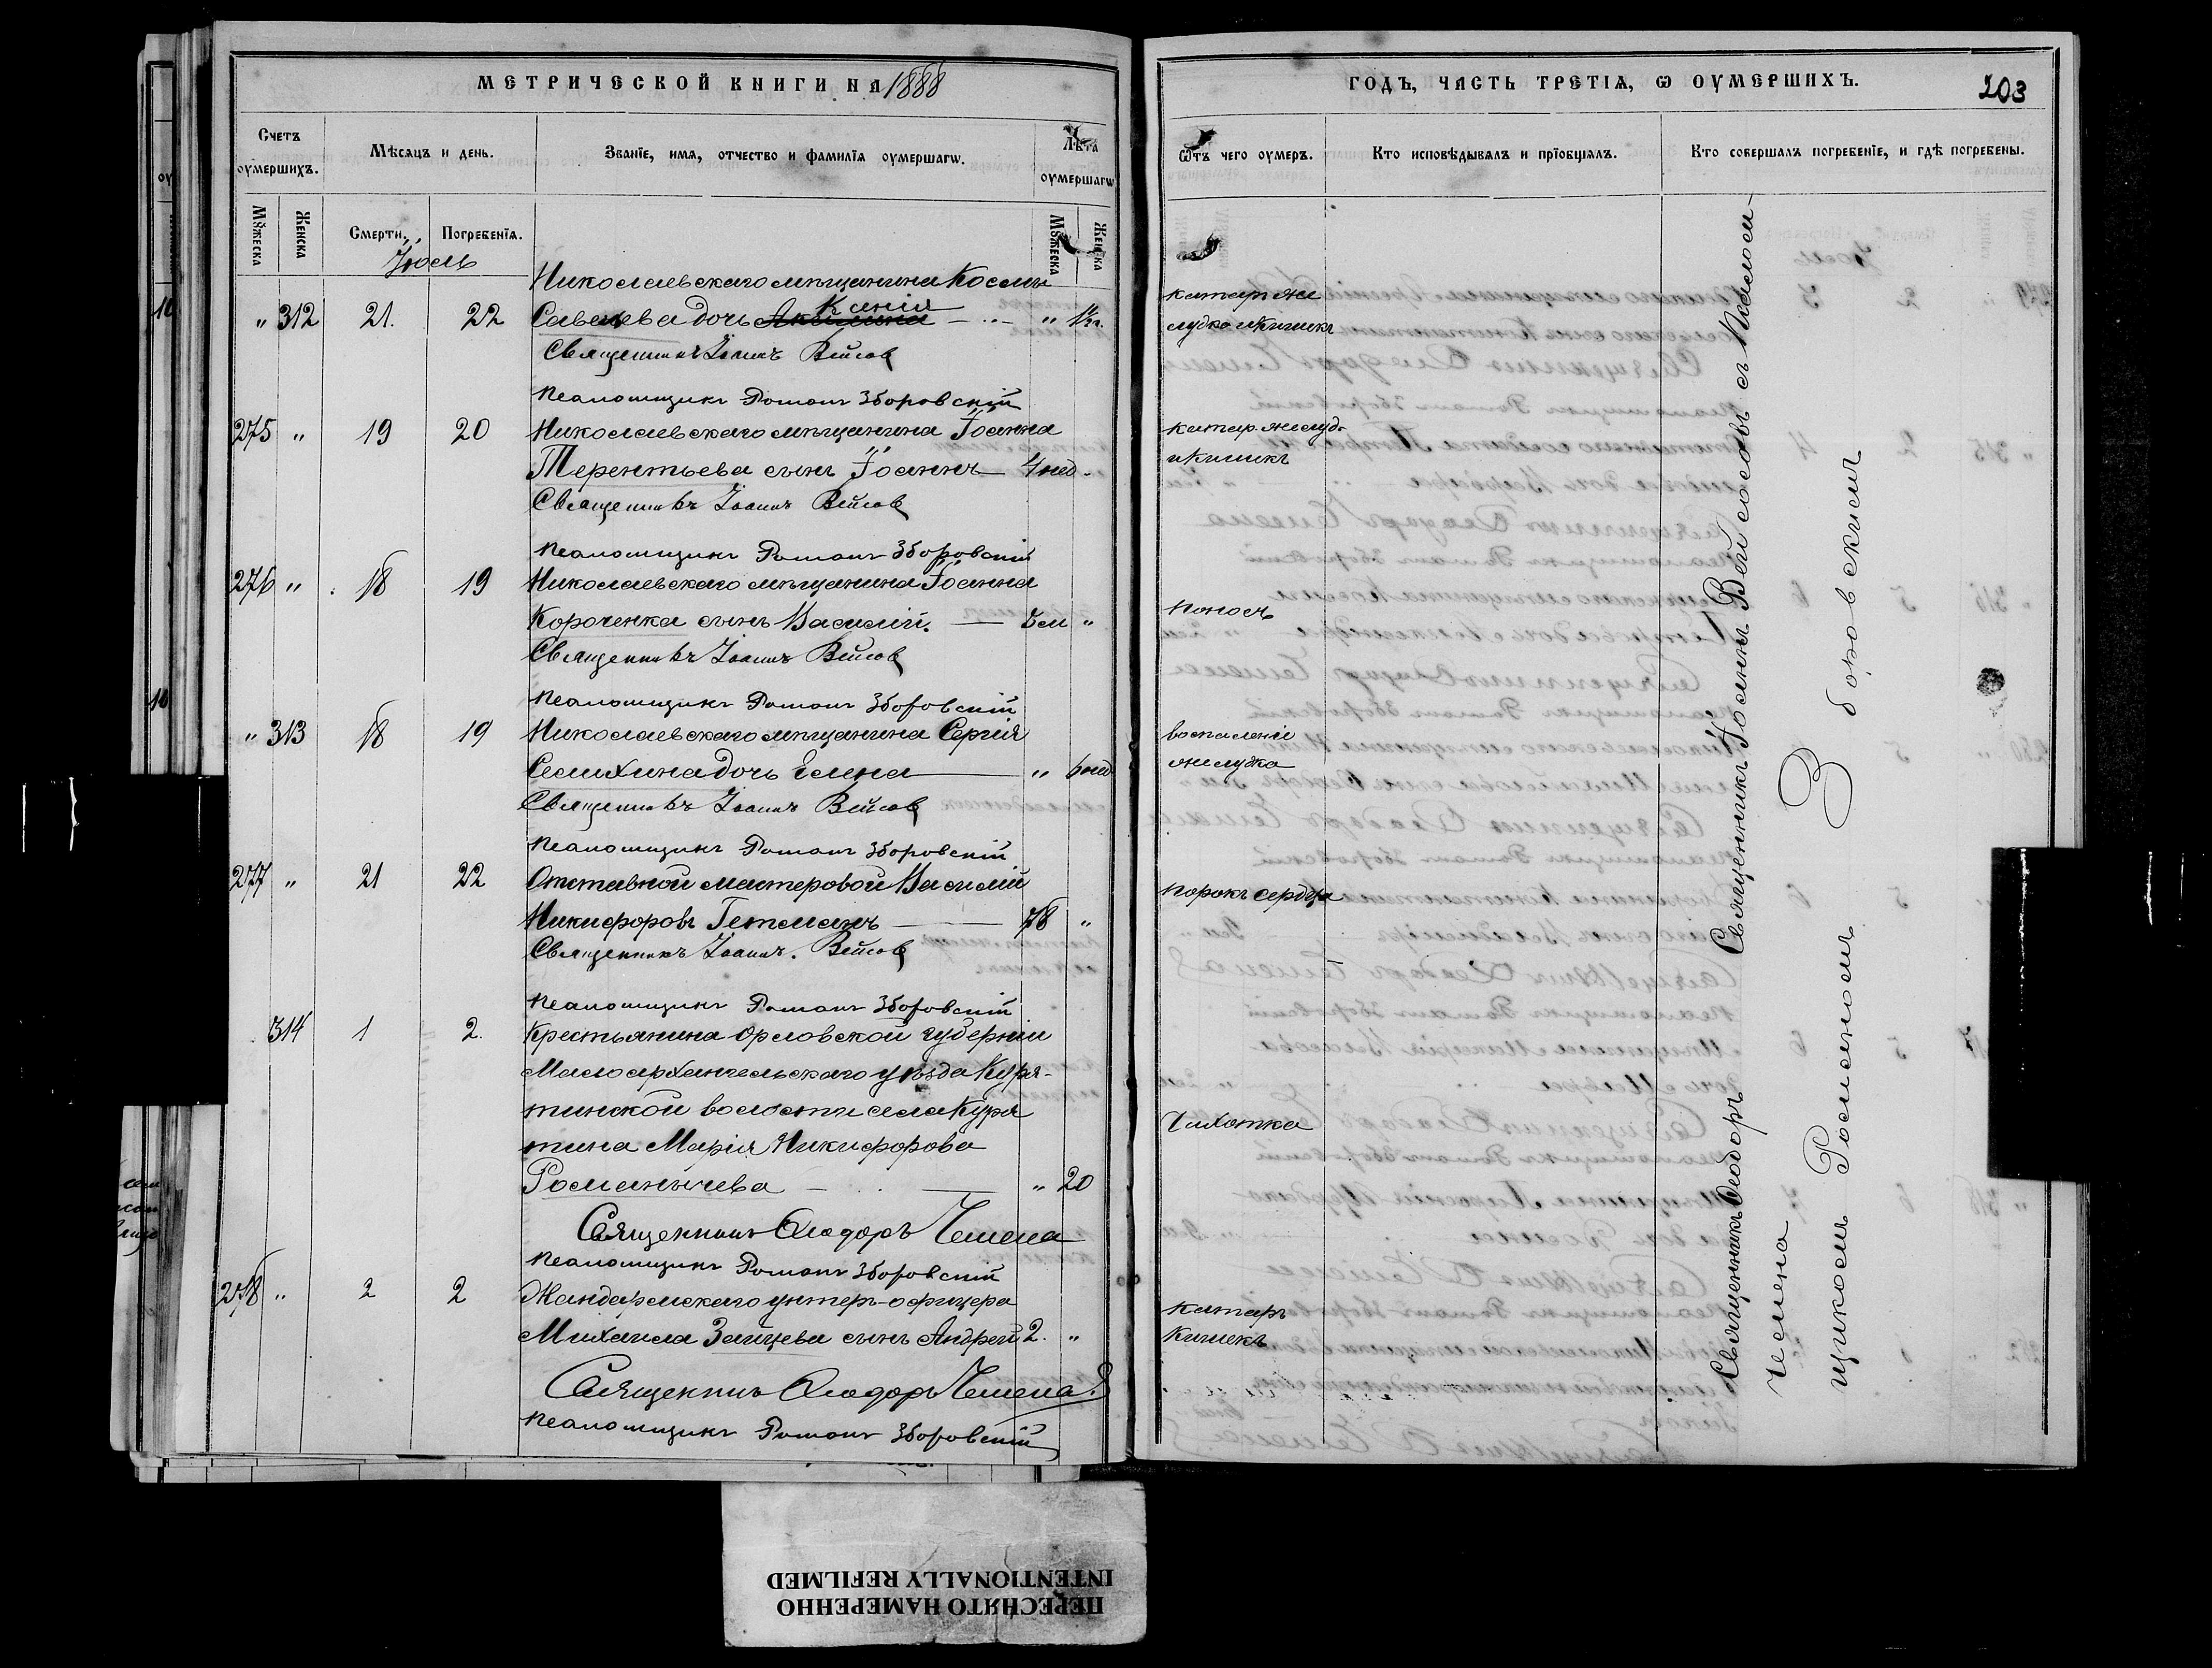 МЕТРИЧЕСКОЙ КНИГИ НА 1888
Счетъ оумершихъ.
Мѣсяцъ и день.
Званіе, имя, отчество и фамилія оумершагѡ.
Лѣта оумершагѡ
Мꙋжеска
Женска
Смерти.
Погребенія.
Мꙋжеска
Женска
Іюль
Николаевскаго мѣщанина Космы
" 312 21. 22 Савельева дочь Ксенія " 1½ г.
Священникъ Іоаннъ Вейсов
Псаломщикъ Романъ Зборовскій
275 " 19 20 Николаевскаго мѣщанина Іоанна
Терентьева сынъ Іоаннъ 4 нед.
Священникъ Іоаннъ Вейсов
Псаломщикъ Романъ Зборовскій
276 " 18 19 Николаевскаго мѣщанина Іоанна
Короченка сынъ Василій. "
Священникъ Іоаннъ Вейсов
Псаломщикъ Романъ Зборовскій
" 313 18 19 Николаевскаго мѣщанина Сергія
Семихина дочь Елена " 6 нед
Священникъ Іоаннъ Вейсов
Псаломщикъ Романъ Зборовскій
277 " 21 22 Отставной мастеровой Василій
Никифоровъ Гетманъ 78 "
Священникъ Іоаннъ. Вейсов
Псаломщикъ Романъ Зборовскій
314 1 2. Крестьянина Орловской губерніи
Малоархангельскаго уѣзда Куря-
тинской волости села Куря
тина Марія Никифорова
Романычева " 20
Священникъ Ѳеодоръ Чемена
Псаломщикъ Романъ Зборовскій
278 " 2 2 Жандармскаго унтеръ-офицера
Михаила Зайцева сынъ Андрей 2. "
Священникъ Ѳеодоръ Чемена
Псаломщикъ Романъ Зборовскій
ГОДЪ, ЧАСТЬ ТРЕТІѦ, Ѡ ОУМЕРШИХЪ.
203
Ѿъ чего оумеръ.
Кто исповѣдывалъ и прїобщалъ.
Кто совершалъ погребенїе, и гдѣ погребены.
катаръ же
лудка и кишекъ
катар. желуд.
и кишекъ
поносъ
воспаленіе
желудка
порокъ сердца
Чахотка
катаръ
кишекъ
Священникъ Ѳеодоръ Священникъ Іоаннъ Вейсовъ съ Псалом-
Чемена
щикомъ Романомъ Зборовскимъ
ПЕРЕСНЯТО НАМЕРЕННО
INTENTIONALLY REFILMED